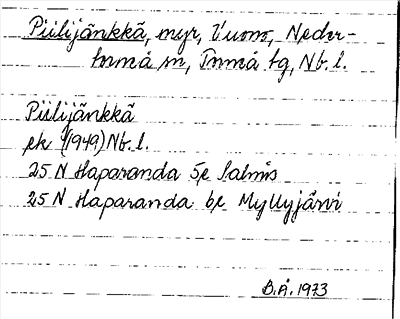 Piilijänkkä, myr, Vuono, Neder-
tornå sn, Torneå tg, Nb. l.
Piilijänkkä
ek (1949) Nb. l.
25 N Haparanda 5e Salmis
25 N Haparanda 6e Myllyjärvi
B.Å. 1973